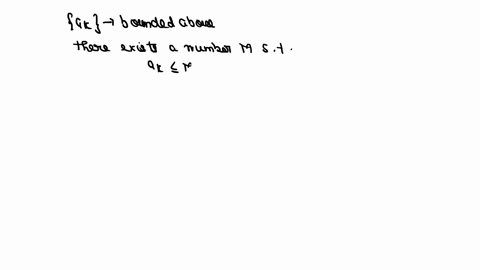 {a_k} → bounded above
there exists a number M s.t.
a_k ≤ M